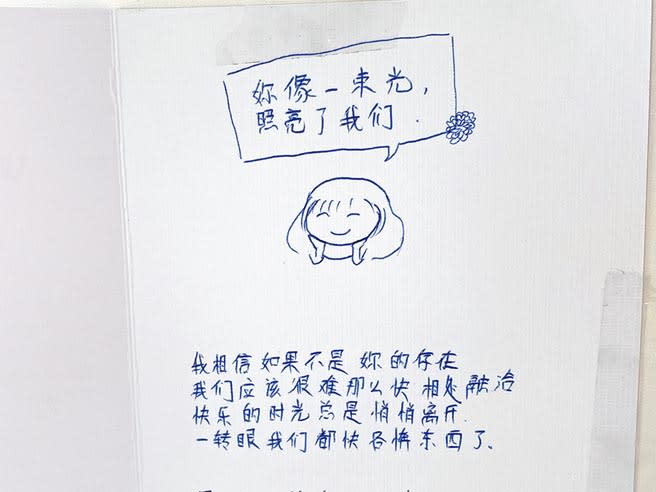 妳像一束光，
照亮了我们.
我相信如果不是妳的存在
我们应该很难那么快相处融洽
快乐的时光总是悄悄离开.
一转眼我们都快各奔东西了.